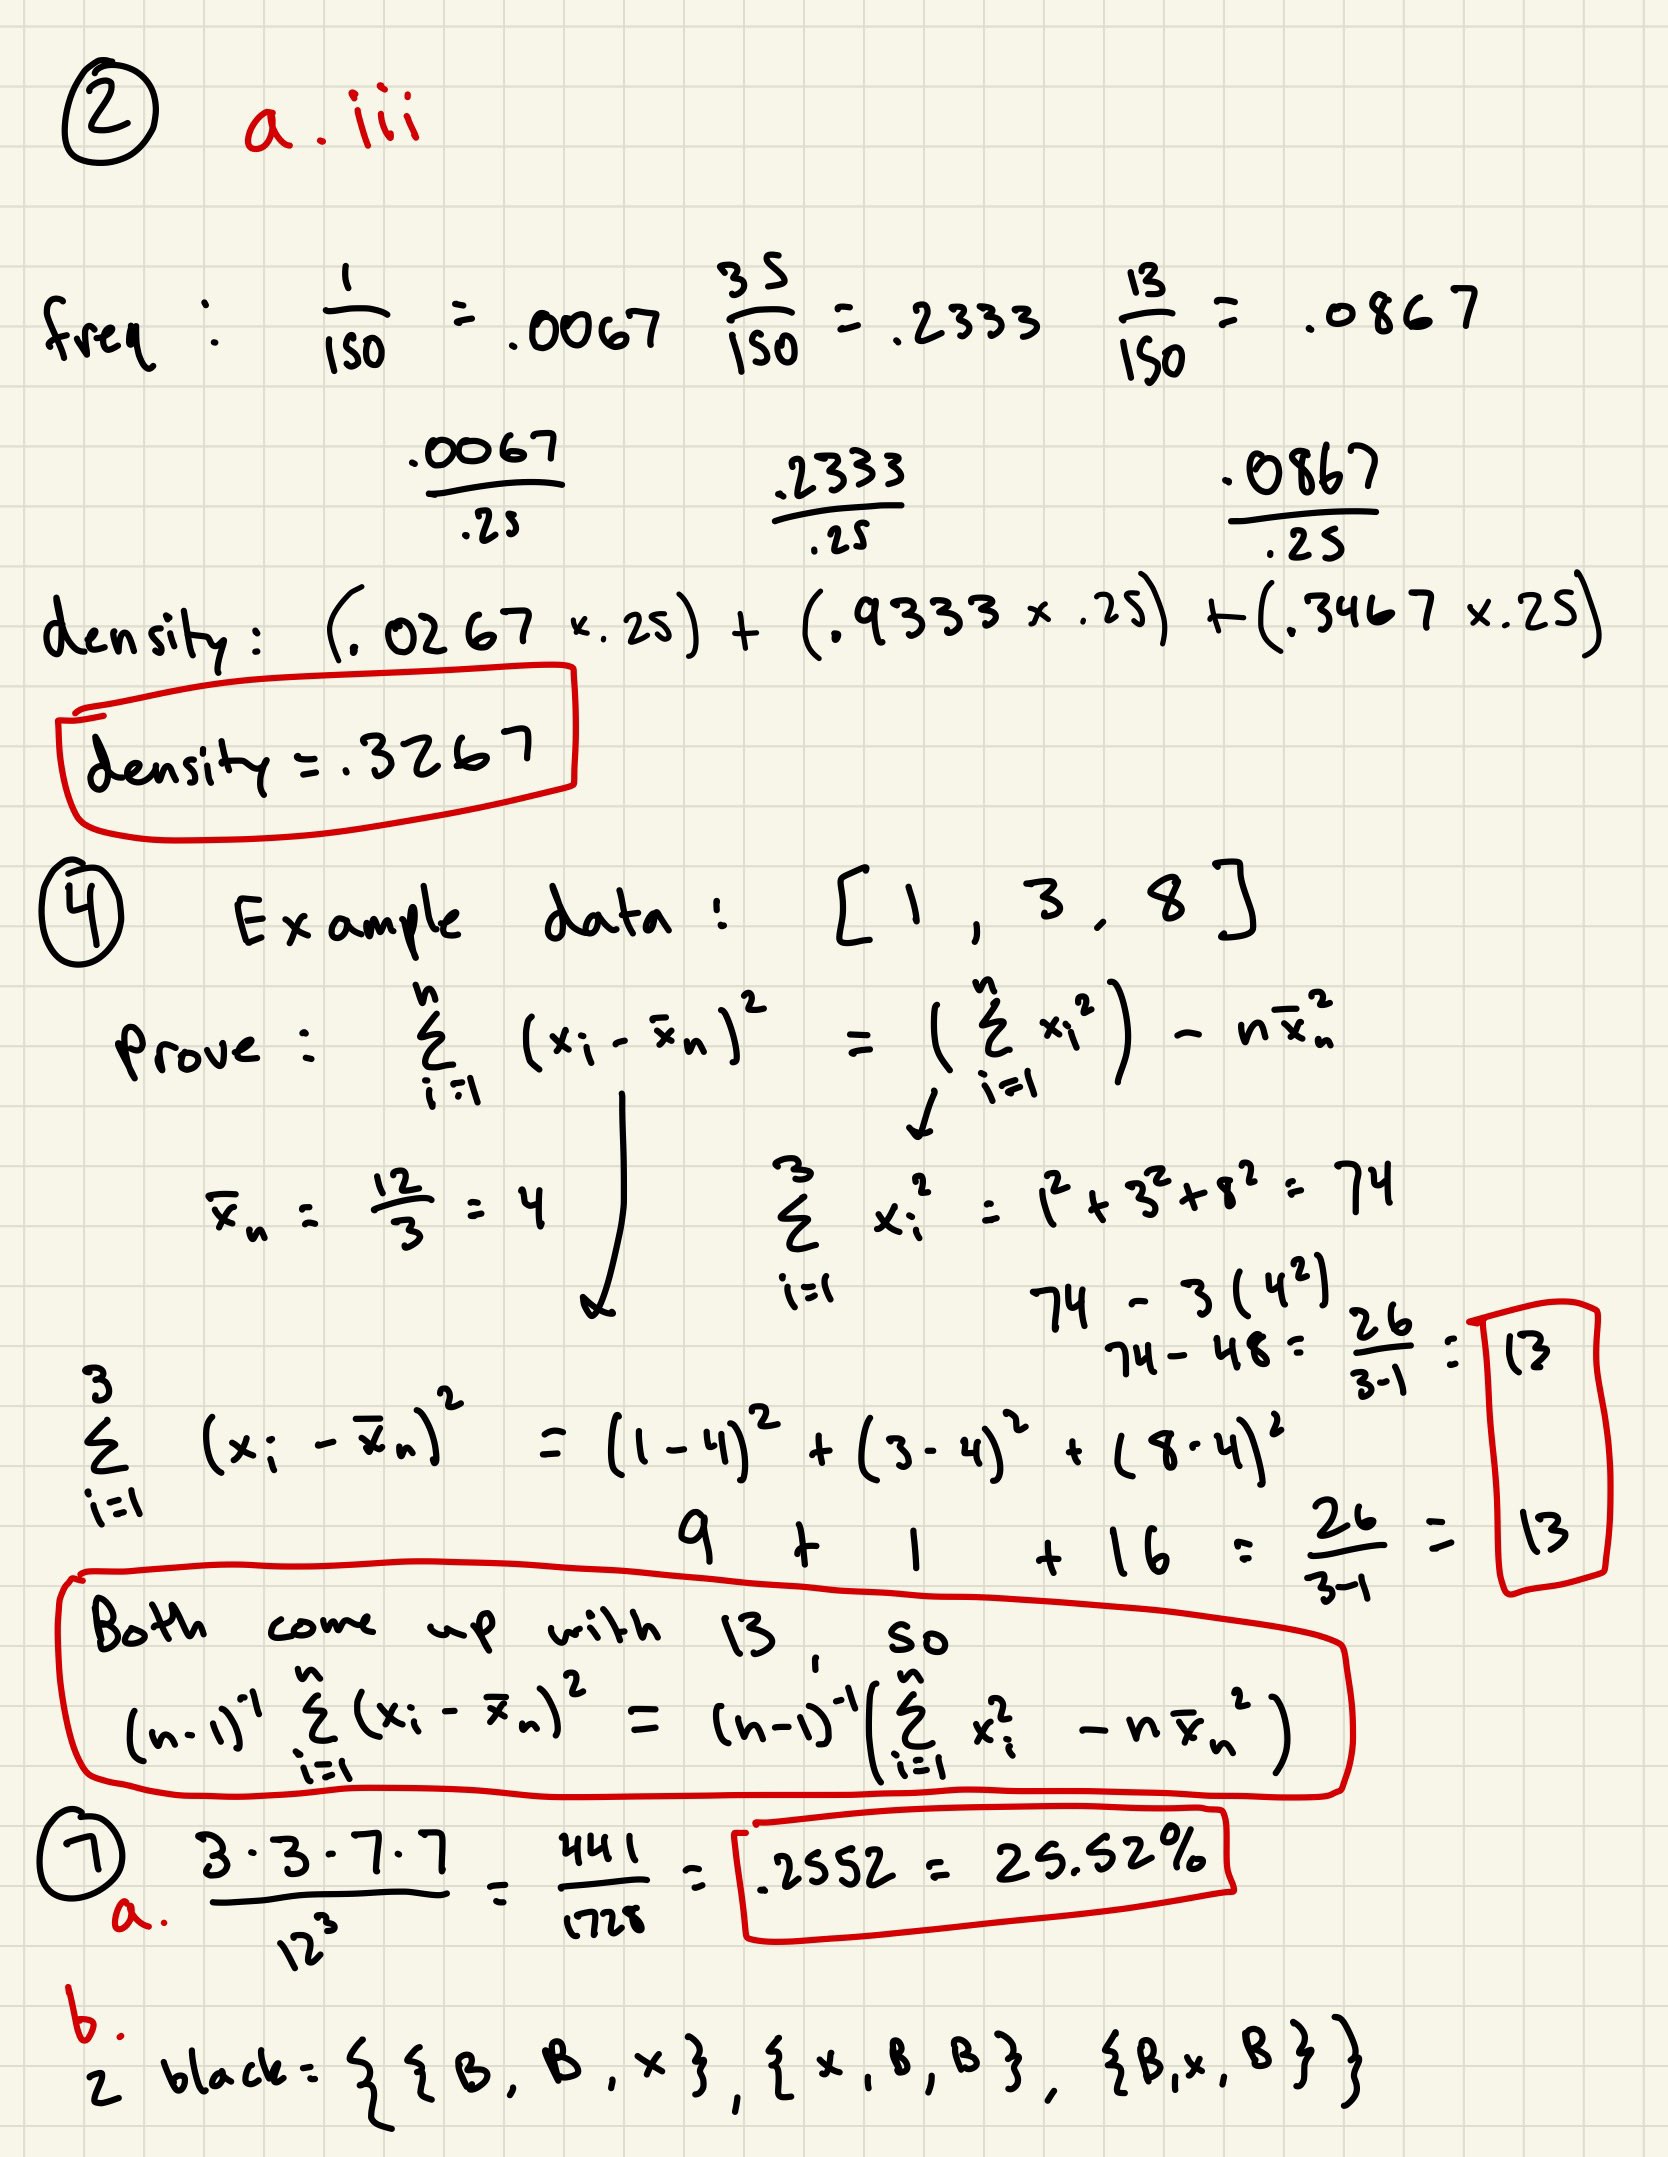 2 a.iii
freq : 1/150 = .0067 35/150 = .2333 13/150 = .0867
.0067/.25 .2333/.25 .0867/.25
density: (.0267 x .25) + (.9333 x .25) + (.3467 x .25)
density = .3267
4 Example data : [1, 3, 8]
Prove : Σ_{i=1}^{n} (xᵢ - x̄ₙ)² = (Σ_{i=1}^{n} xᵢ²) - nx̄ₙ²
x̄ₙ = 12/3 = 4
Σ_{i=1}^{3} xᵢ² = 1² + 3² + 8² = 74
74 - 3(4²)
74 - 48 = 26/3-1 = 13
Σ_{i=1}^{3} (xᵢ - x̄ₙ)² = (1-4)² + (3-4)² + (8-4)²
9 + 1 + 16 = 26/3-1 = 13
Both come up with 13, so
(n-1)⁻¹ Σ_{i=1}^{n} (xᵢ - x̄ₙ)² = (n-1)⁻¹(Σ_{i=1}^{n} xᵢ² - nx̄ₙ²)
7 a. 3·3·7·7/12³ = 441/1728 = .2552 = 25.52%
b.
2 black = {{B, B, x}, {x, B, B}, {B, x, B}}